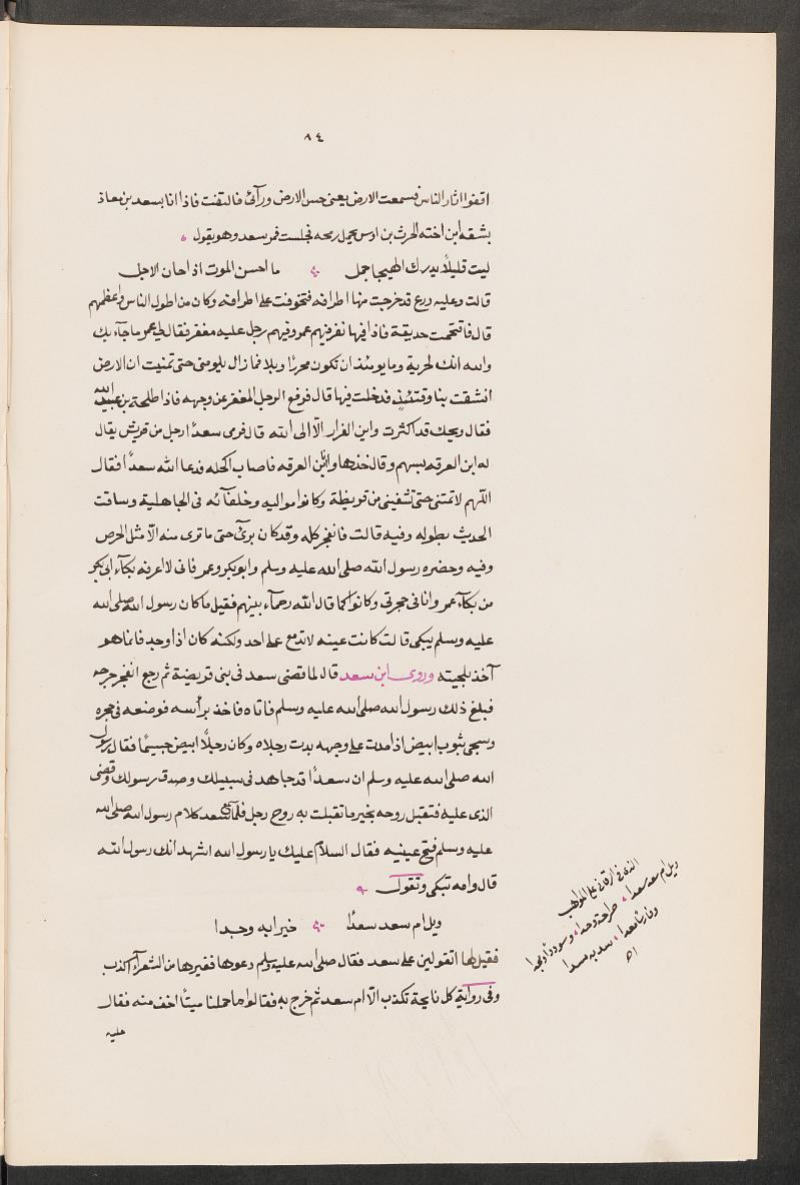 ٨٤
اقفوا اثار الناس فسمعت الارض يعنى حس الارض ورآئى فالتفت فاذا انا بسعد بن معاذ
بشقه ابن اخته الحرث بن اوس يحمل رمحه فجلست فمر سعد وهو يقول
ليت قليلاً يدرك الهيجا جمل ما احسن الموت اذا حان الاجل
قالت وعليه درع قد خرجت منها اطرافه فتخوفت على اطرافه وكان من اطول الناس واعظمهم
قال فاقتحمت حديقة فاذا فيها نفر فيهم عمر وفيهم رجل عليه مغفر فقال لى عمر ما جآء بك
والله انك لجرية وما يومنك ان تكون محرزا وبلا فما زال يلومنى حتى تمنيت ان الارض
انشقت بنا وقتئيذ فدخلت فيها قال فرفع الرجل المغفر عن وجهه فاذا طلحة بن عبيد الله
فقال ويحك قد اكثرت واين الفرار الّا الى الله قال فرمى سعدًا رجل من قريش يقال
له ابن العرقه بسهم وقال خذها وانا ابن العرقه فاصاب اكحله فدعا الله سعدًا فقال
اللهم لا تمتنى حتى تشفينى من قريظة وكانوا مواليه وخلفآئه فى الجاهلية وساقت
الحديث بطوله وفيه قالت فانفجر كله وقد كان برئ حتى ما ترى منه الّا مثل الحرص
وفيه وحضره رسول الله صلى الله عليه وسلم وابو بكر وعمر فانى لا اعرف بكآء ابى بكر
من بكآء عمر وانا فى حجرتى وكانوا كما قال الله رحمآء بينهم فقيل ما كان رسول الله صلى الله
عليه وسلم يبكى قالت كانت عينه لا تدمع على احد ولكنه كان اذا وجد فانما هو
آخذ بلحيته وروى ابن سعد قال لما قضى سعد فى بنى قريضة ثم رجع انفجر جرحه
فبلغ ذلك رسول الله صلى الله عليه وسلم فاتاه فاخذ برأسه فوضعه فى حجره
وسجى بثوب ابيض اذا مدت على وجهه بدت رجلاه وكان رجلاً ابيض جسيمًا فقال رسول
الله صلى الله عليه وسلم ان سعدًا قد جاهد فى سبيلك وصدق رسولك وقضى
الذى عليه فتقبل روحه بخير ما تقبلت به روح رجل فلما سمع سعد كلام رسول الله صلى الله
عليه وسلم فتح عينيه فقال السلام عليك يا رسول الله اشهد انك رسول الله
قال وامه تبكى وتقول
ويل ام سعد سعدًا خيرا به وجدا
فقيل لها اتقولين على سعد فقال صلى الله عليه وسلم دعوها فغيرها من الشعرآء اكذب
وفى رواية كل نايحة تكذب الّا ام سعد ثم خرج به فقالوا ما حملنا ميتًا اخف منه فقال
عليه
الذى فى الزرقانى على المواهب
ويل ام سعد سعدا صرامة وحدا وسوددا ومجدا
وفارسا معدا سد به مسدا
اه